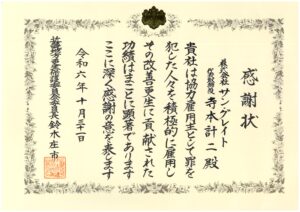 感謝状
株式会社サン・グレイト
寺本計二殿
貴社は協力雇用主として罪を
犯した人々を積極的に雇用し
その改善更生に貢献された
功績はまことに顕著であります
ここに深く感謝の意を表します
令和六年十月三十一日
鈴木庄市